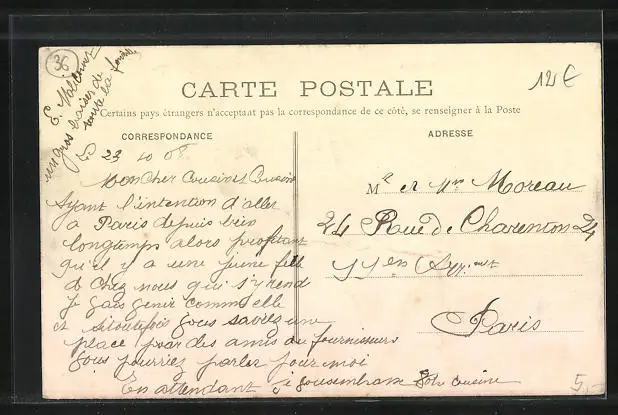 36
12 €
E. Malleins
un gros baiser de
toute la famille
CARTE POSTALE
Certains pays étrangers n'acceptant pas la correspondance de ce côté, se renseigner à la Poste
CORRESPONDANCE
ADRESSE
23 10 08
Mon Cher Cousin et Cousine
Ayant l'intention d'aller
a Paris depuis bien
longtemps alors profitant
qu'il y a une jeune fille
de chez nous qui s'y rend
je
comme elle
et si toutefois vous savez une
place par des amis ou fournisseurs
vous pourriez parler pour moi
En attendant je vous embrasse votre cousine
Mr et Mme Moreau
24 Rue de Charenton 24
Paris
5,-